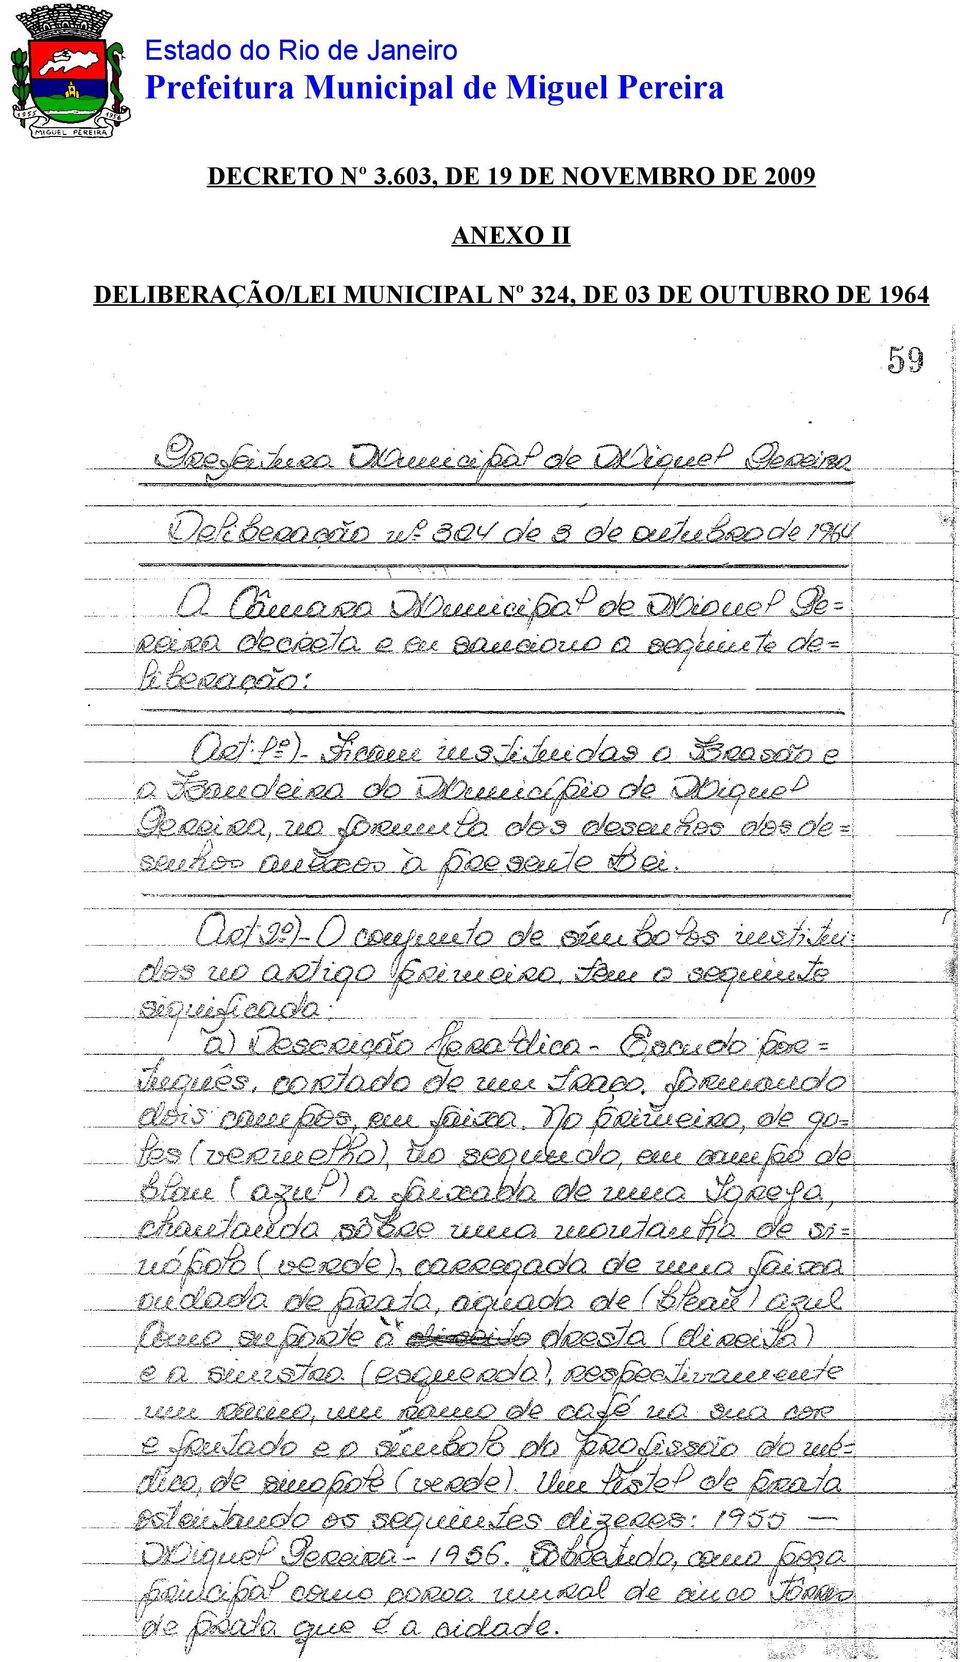 Estado do Rio de Janeiro
Prefeitura Municipal de Miguel Pereira
1955 1956
MIGUEL PEREIRA
DECRETO Nº 3.603, DE 19 DE NOVEMBRO DE 2009
ANEXO II
DELIBERAÇÃO/LEI MUNICIPAL Nº 324, DE 03 DE OUTUBRO DE 1964
59
Prefeitura Municipal de Miguel Pereira
Deliberação nº 324 de 3 de outubro de 1964
A Câmara Municipal de Miguel Pe=
reira decreta e eu sanciono a seguinte de=
liberação:
Art. 1º)- Ficam instituidas o Brasão e
a Bandeira do Município de Miguel
Pereira, na formula dos desenhos dos de=
senhos anéxos à presente Lei.
Art. 2º)- O conjunto de símbolos institui
dos no artigo primeiro, tem o seguinte
significada:
a) Descrição heraldica - Escudo por=
tuguês, cortado de um traço, formando
dois campos, em faixa. No primeiro, de go=
les (vermelho), no segundo, em campo de
blau (azul) a faixada de uma Igreja,
chantanda sôbre uma montanha de si=
nópolo (verde), carregada de uma faixa
ondada de prata, aguada de (blau) azul
Como suporte à direita dresta (direita)
e a sinistra (esquerda), respectivamente
um ramo, um ramo de café na sua cor
e frutado e o símbolo da profissão do mé=
dico, de sinopole (verde). Um listel de prata
ostentando os seguintes dizeres: 1955 —
Miguel Pereira - 1956. Sobretudo, como peça
principal como coroa mural de cinco tôrres
de prata que é a cidade.